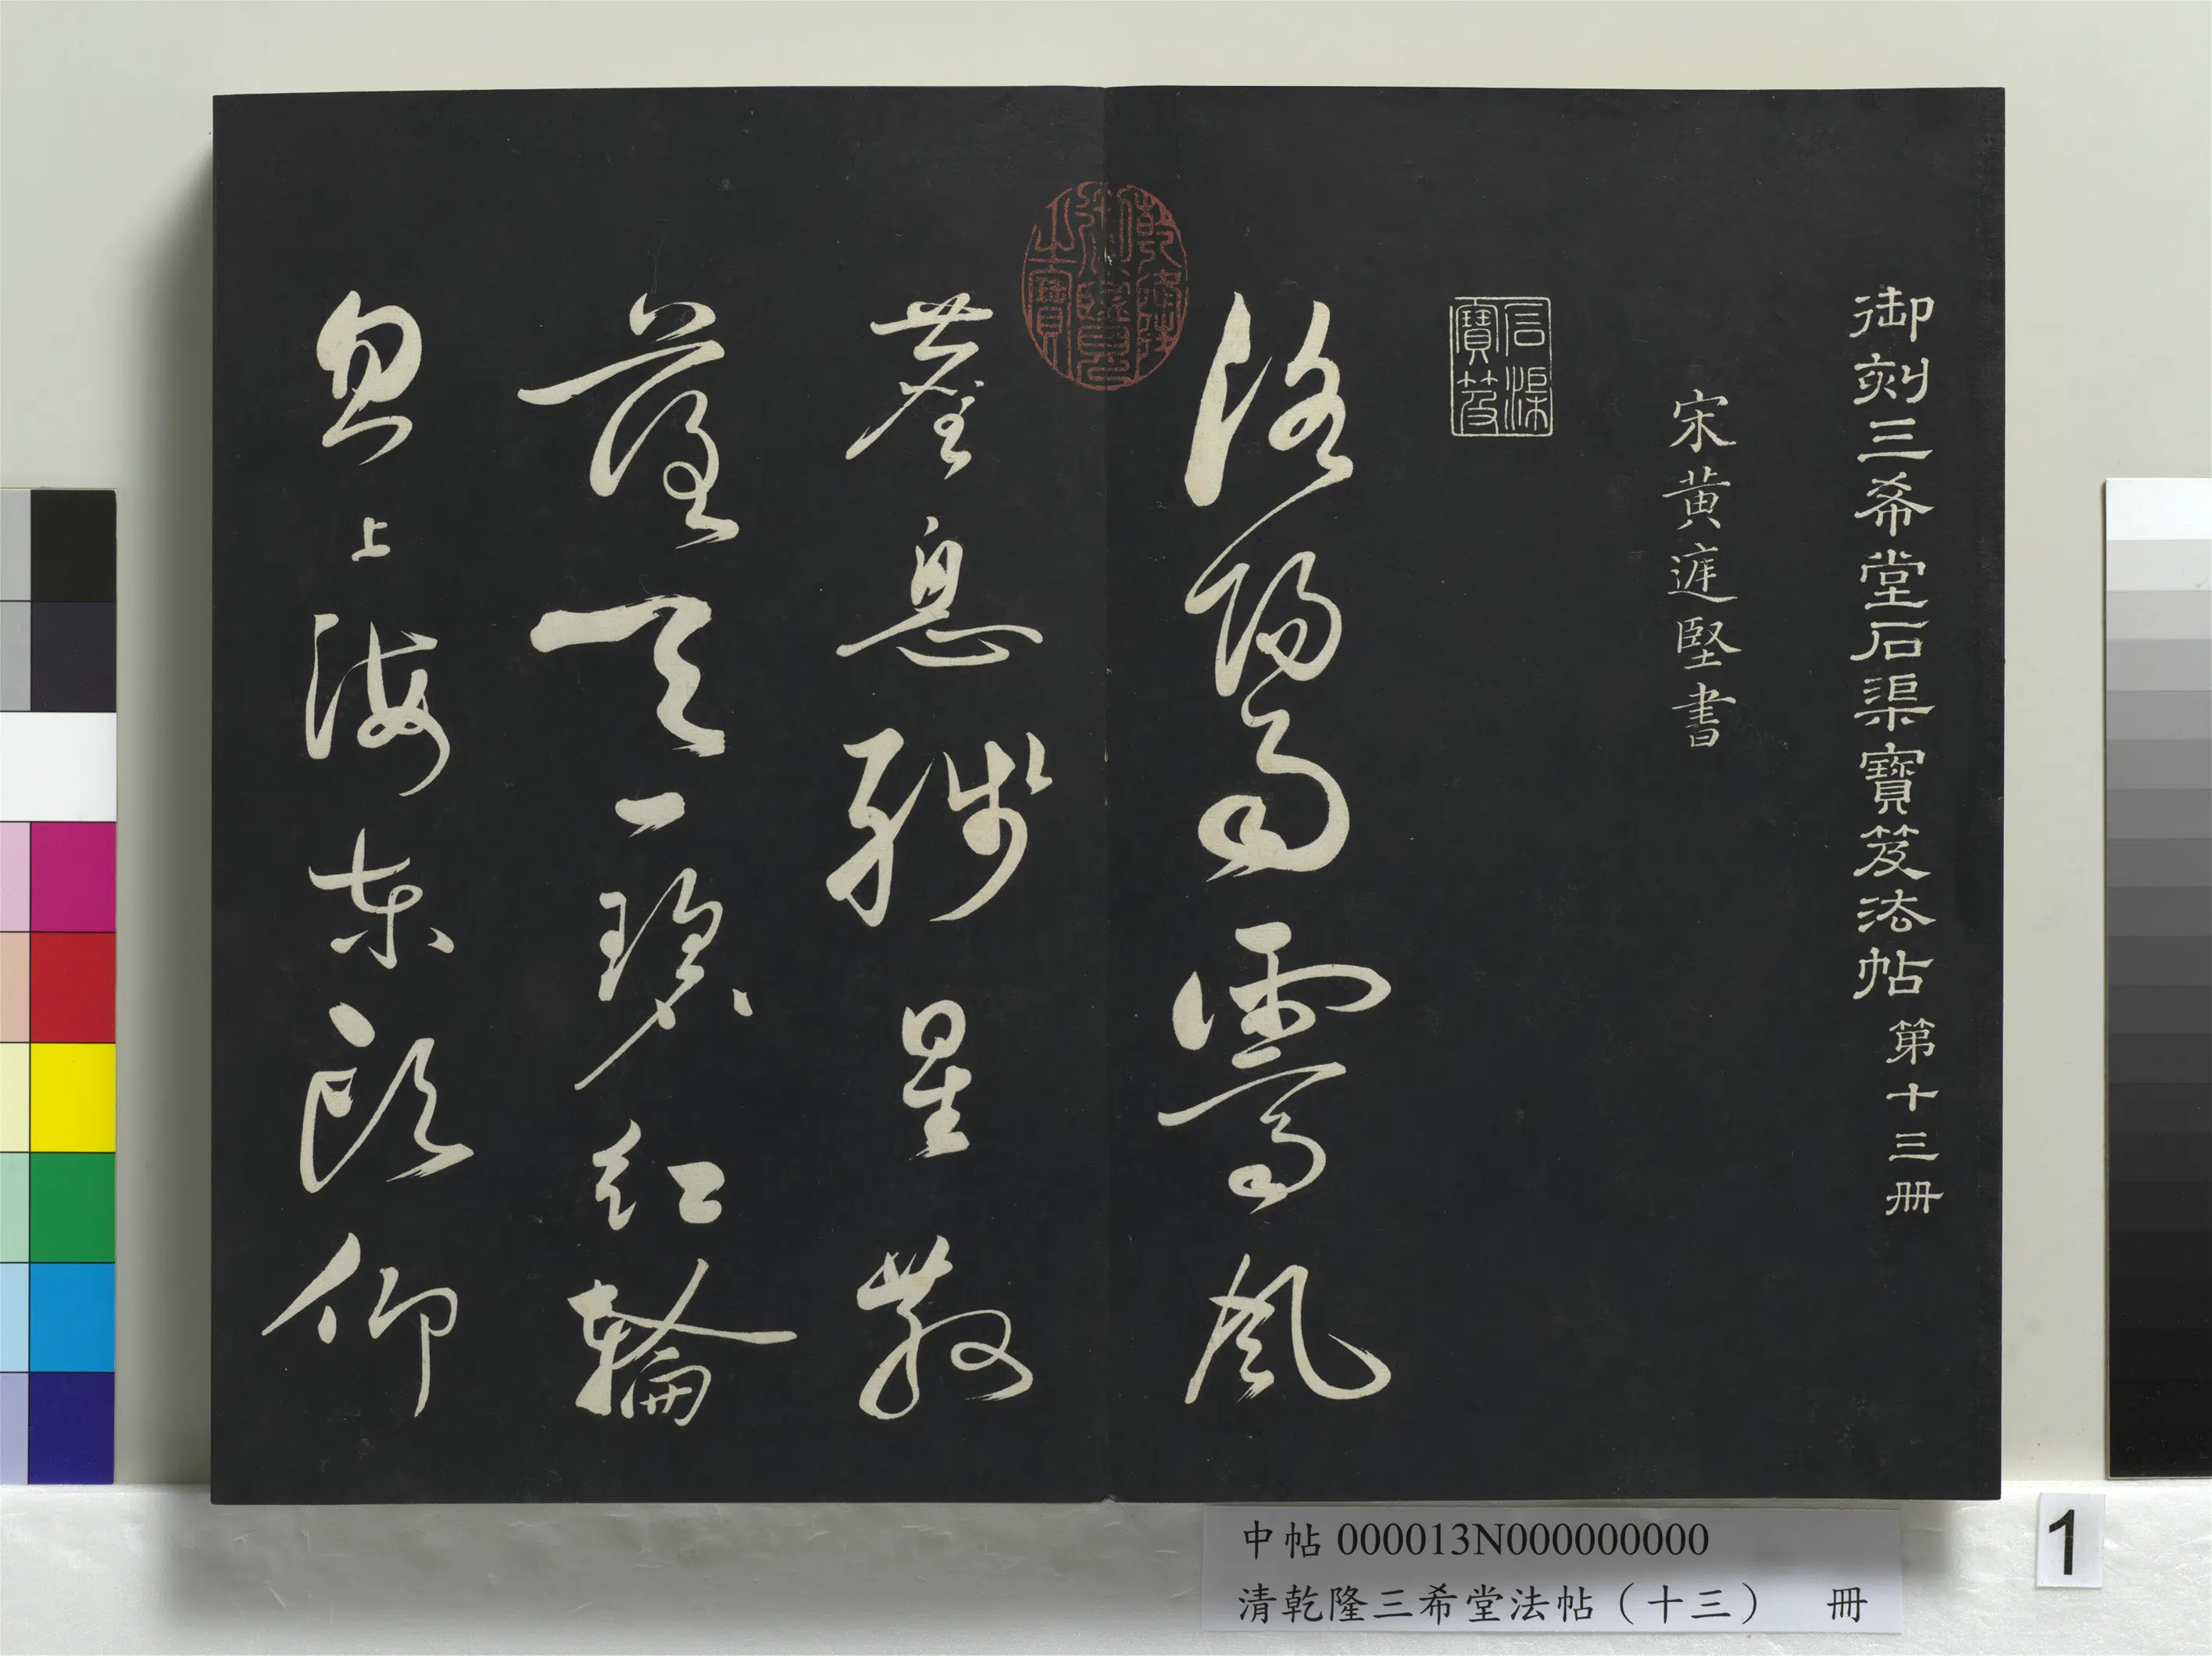 御刻三希堂石渠寶笈法帖 第十三册
宋黃庭堅書
石渠寶笈
洛陽雨霽風
乾隆御覽之寶
塵息殘星散
落天一碧紅輪
忽上海東頭仰
中帖 000013N000000000
清乾隆三希堂法帖（十三） 冊
1